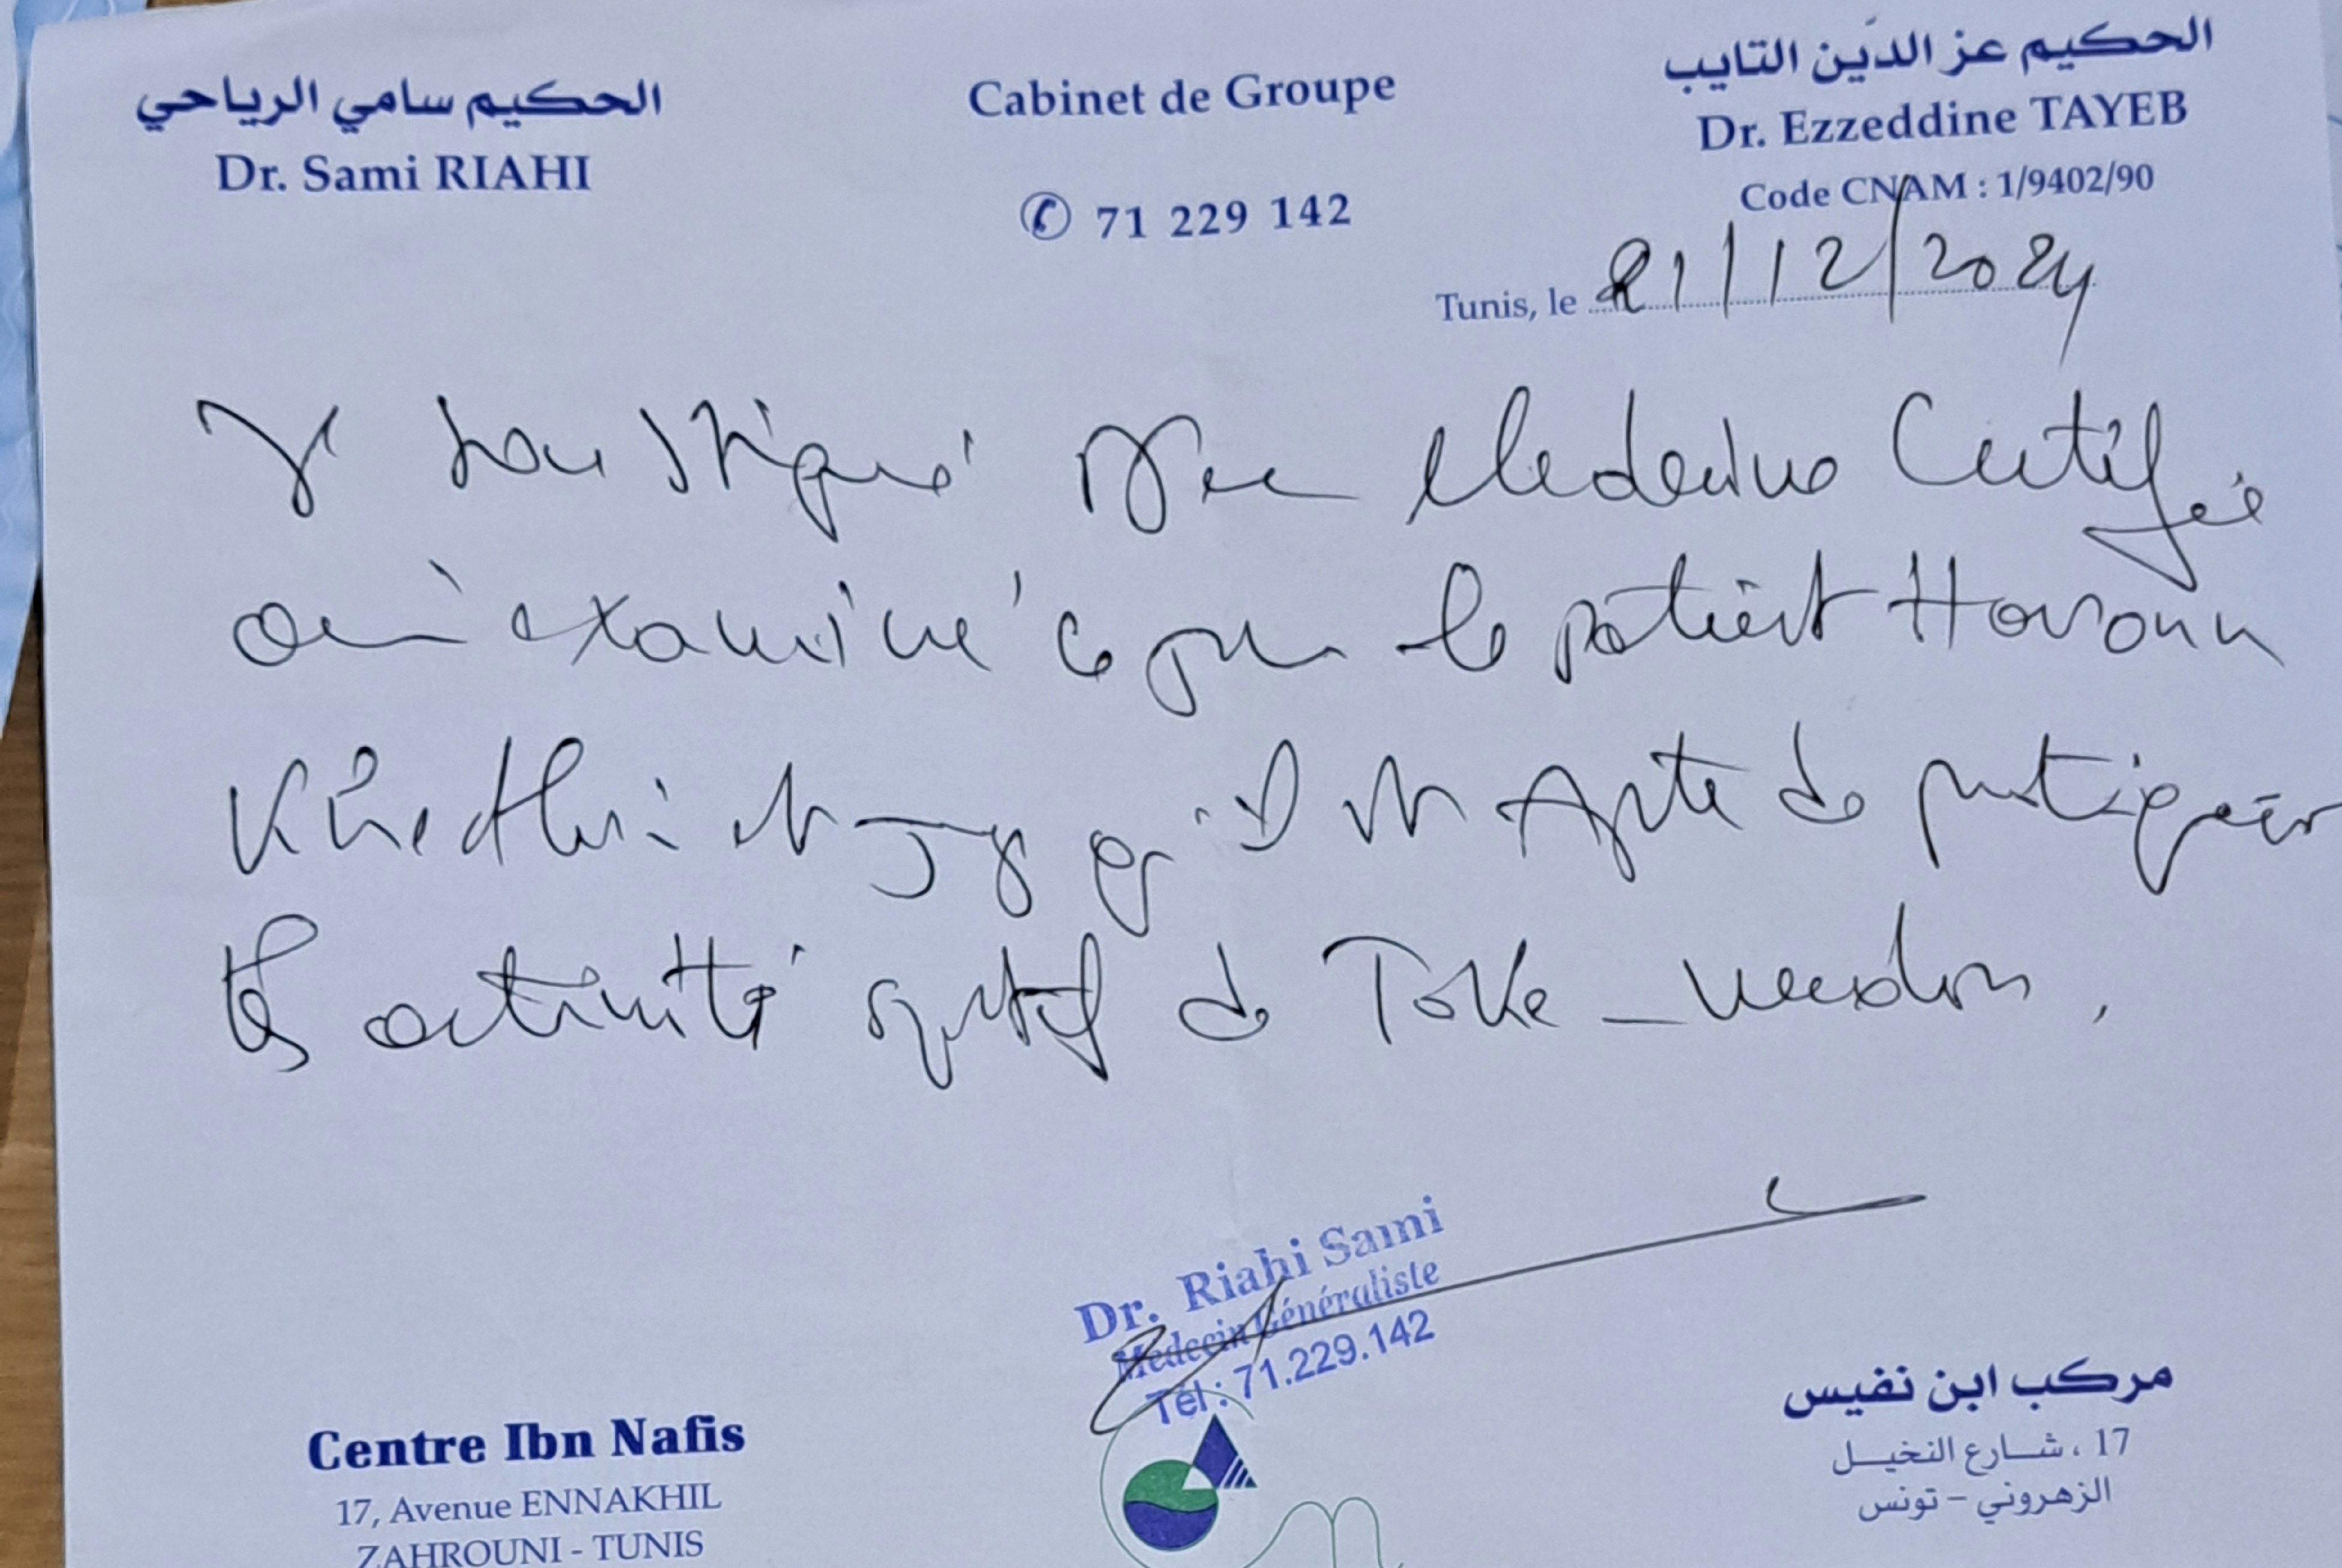 الحكيم سامي الرياحي
Dr. Sami RIAHI
Cabinet de Groupe
✆ 71 229 142
الحكيم عز الدّين التايب
Dr. Ezzeddine TAYEB
Code CNAM : 1/9402/90
Tunis, le 21/12/2024
Je soussigné Medecine Certifie
examiné ce jour le patient Haroun
Khedhri et qu'il est Apte de pratiquer
les activité sportif de
Dr. Riahi Sami
Médecin Généraliste
Tél : 71.229.142
Centre Ibn Nafis
17, Avenue ENNAKHIL
ZAHROUNI - TUNIS
مركب ابن نفيس
17 ، شارع النخيل
الزهروني - تونس